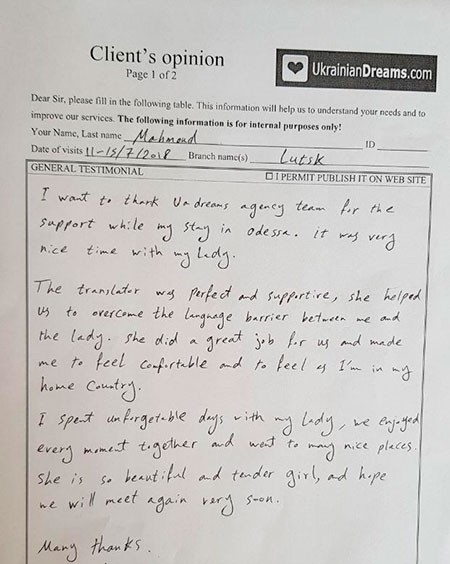 Client's opinion
Page 1 of 2
UkrainianDreams.com
Dear Sir, please fill in the following table. This information will help us to understand your needs and to
improve our services. The following information is for internal purposes only!
Your Name, Last name Mahmoud ID
Date of visits 11-15/7/2018 Branch name(s) Lutsk
GENERAL TESTIMONIAL ☐ I PERMIT PUBLISH IT ON WEB SITE
I want to thank Uadreams agency team for the
support while my stay in odessa. it was very
nice time with my lady.
The translator was perfect and supportive, she helped
us to overcome the language barrier between me and
the lady. she did a great job for us and made
me to feel confortable and to feel as I'm in my
home Country.
I spent unforgetable days with my lady, we enjoyed
every moment together and went to many nice places.
she is so beautiful and tender girl, and hope
we will meet again very soon.
Many thanks.